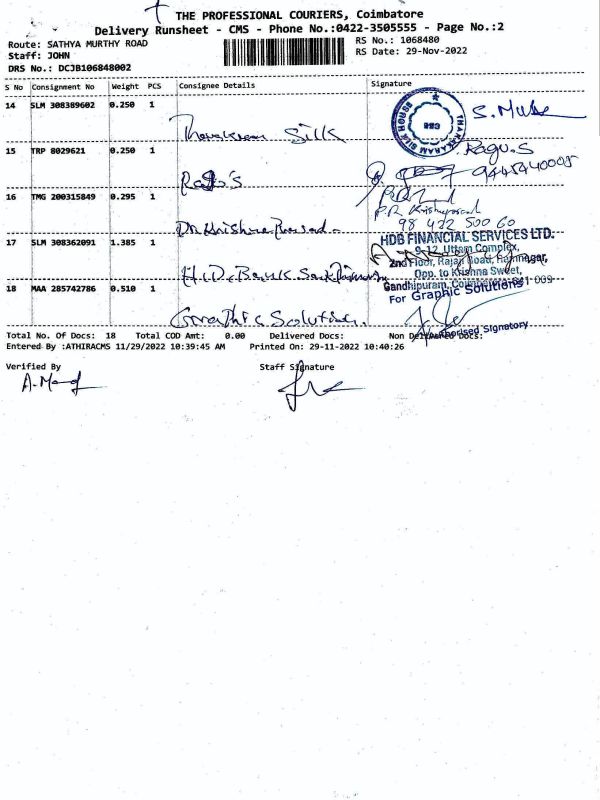 THE PROFESSIONAL COURIERS, Coimbatore
Delivery Runsheet - CMS - Phone No.:0422-3505555 - Page No.:2
Route: SATHYA MURTHY ROAD
RS No.: 1068480
Staff: JOHN
RS Date: 29-Nov-2022
DRS No.: DCJB106848002
S No Consignment No Weight PCS Consignee Details Signature
14 SLM 308389602 0.250 1
Silk
S.
15 TRP 8029621 0.250 1
Ragu.S
9445440005
16 TMG 200315849 0.295 1
P.R. Krishnaprasad
98 422 500 60
Dr. Krishna Prasad.
17 SLM 308362091 1.385 1
HDB FINANCIAL SERVICES LTD.
9-12, Uttam Complex,
2nd Floor, Rajaji Road, Ramnagar,
Opp. to Krishna Sweet,
Gandhipuram, Coimbatore-641 009
H.D. Bank
18 MAA 285742786 0.510 1
For Graphic Solutions
Graphic Solution.
Authorised Signatory
Total No. Of Docs: 18 Total COD Amt: 0.00 Delivered Docs: Non Delivered Docs:
Entered By :ATHIRACMS 11/29/2022 10:39:45 AM Printed On: 29-11-2022 10:40:26
Verified By Staff Signature